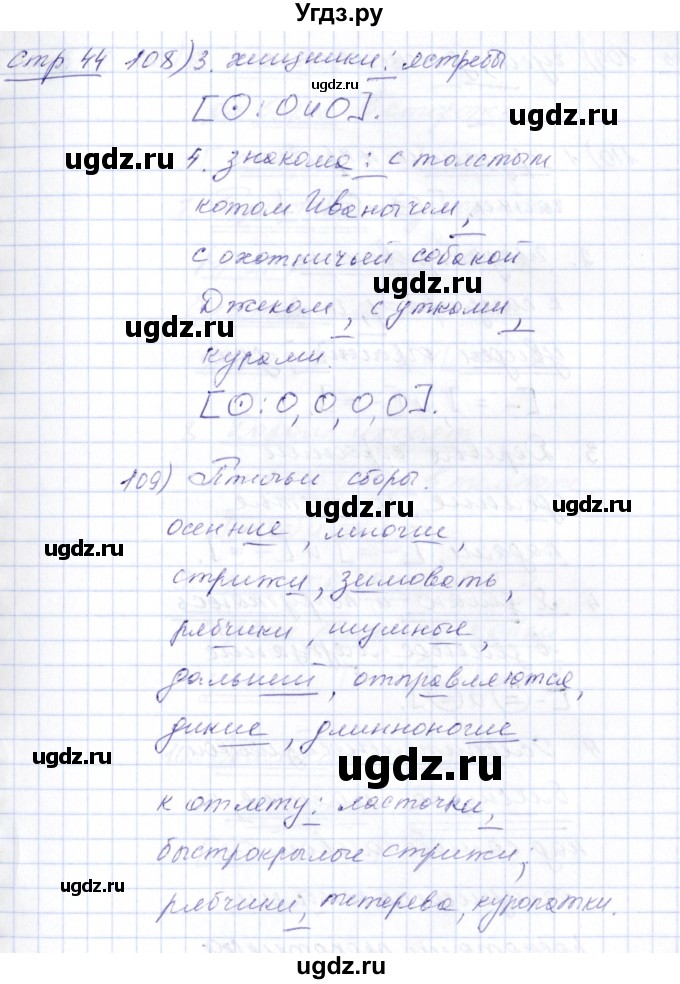 Угдз.ру
стр 44 108) 3. хищники: ястребы
[⊙: О и О].
4. знакома: с толстым
котом Иванычем,
с охотничьей собакой
Джеком, с утками,
курами.
[⊙: О, О, О, О].
109) Птичьи сборы.
осенние, многие,
стрижи, зимовать,
рябчики, шумные,
дальний, отправляются,
дикие, длинноногие.
к отлету: ласточки,
быстрокрылые стрижи;
рябчики, тетерева, куропатки.
ugdz.ru
ugdz.ru
ugdz.ru
ugdz.ru
ugdz.ru
ugdz.ru
ugdz.ru
ugdz.ru
ugdz.ru
ugdz.ru
ugdz.ru
ugdz.ru
ugdz.ru
ugdz.ru